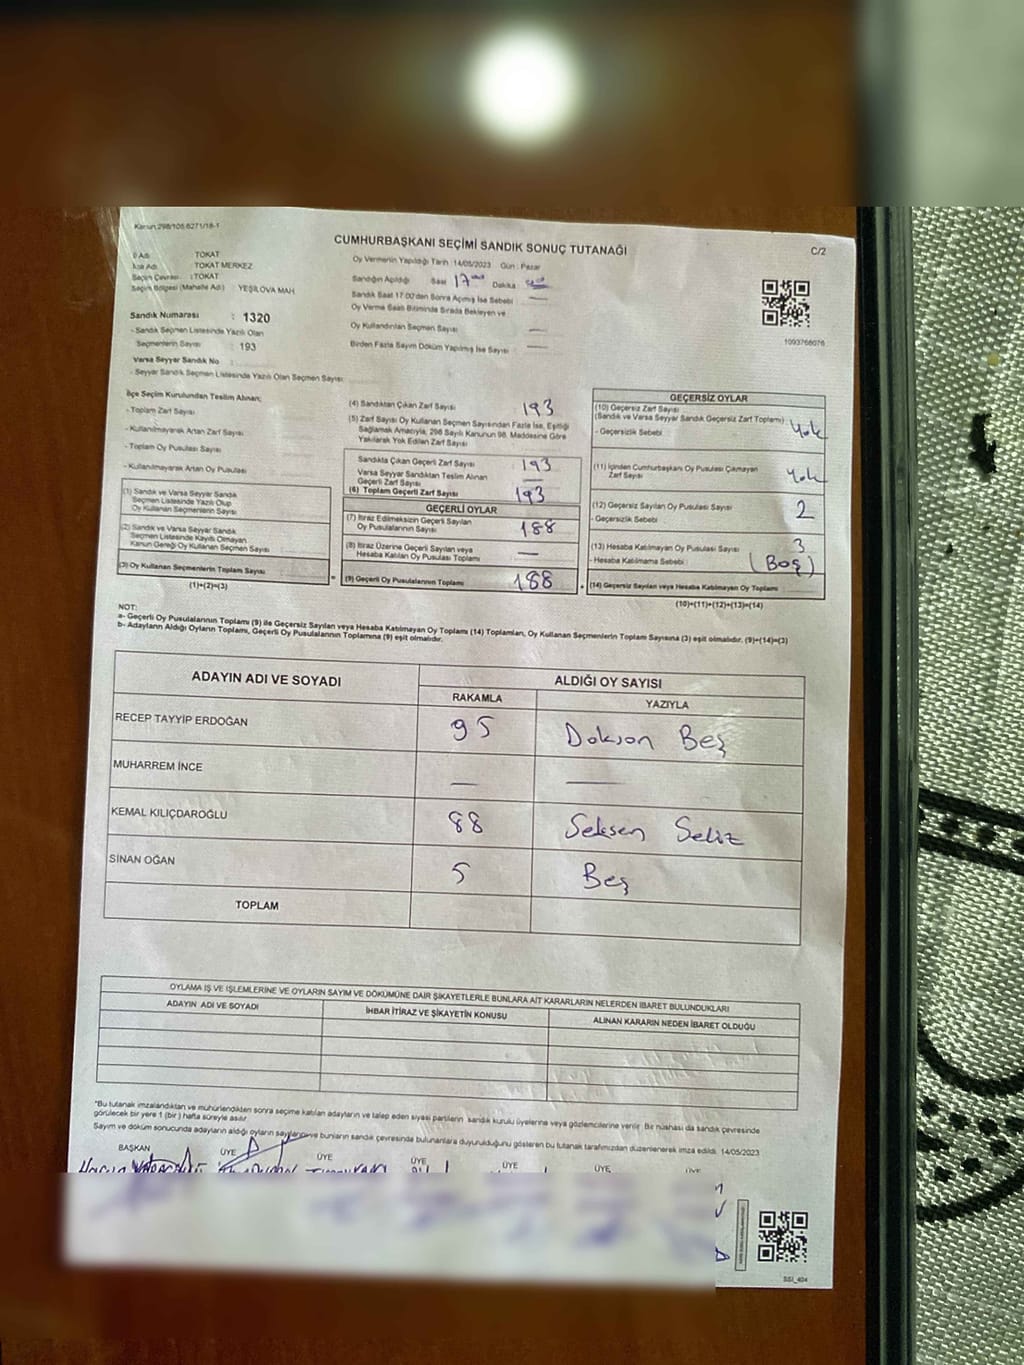 Kanun:298/105,6271/18-1
CUMHURBAŞKANI SEÇİMİ SANDIK SONUÇ TUTANAĞI
C/2
İl Adı : TOKAT
İlçe Adı : TOKAT MERKEZ
Seçim Çevresi : TOKAT
Seçim Bölgesi (Mahalle Adı) : YEŞİLOVA MAH
Sandık Numarası : 1320
- Sandık Seçmen Listesinde Yazılı Olan
Seçmenlerin Sayısı : 193
Varsa Seyyar Sandık No
- Seyyar Sandık Seçmen Listesinde Yazılı Olan Seçmen Sayısı:
Oy Vermenin Yapıldığı Tarih :14/05/2023 Gün : Pazar
Sandığın Açıldığı Saat 17 Dakika
Sandık Saat 17:00'dan Sonra Açılmış İse Sebebi : —
Oy Verme Saati Bitiminde Sırada Bekleyen ve
Oy Kullandırılan Seçmen Sayısı —
Birden Fazla Sayım Döküm Yapılmış İse Sayısı —
1093766076
İlçe Seçim Kurulundan Teslim Alınan;
- Toplam Zarf Sayısı
- Kullanılmayarak Artan Zarf Sayısı
- Toplam Oy Pusulası Sayısı
- Kullanılmayarak Artan Oy Pusulası
(1) Sandık ve Varsa Seyyar Sandık
Seçmen Listesinde Yazılı Olup
Oy Kullanan Seçmenlerin Sayısı
(2) Sandık ve Varsa Seyyar Sandık
Seçmen Listesinde Kayıtlı Olmayan
Kanun Gereği Oy Kullanan Seçmen Sayısı
(3) Oy Kullanan Seçmenlerin Toplam Sayısı
(1)+(2)=(3)
(4) Sandıktan Çıkan Zarf Sayısı 193
(5) Zarf Sayısı Oy Kullanan Seçmen Sayısından Fazla İse, Eşitliği
Sağlamak Amacıyla, 298 Sayılı Kanunun 98. Maddesine Göre
Yakılarak Yok Edilen Zarf Sayısı
Sandıkta Çıkan Geçerli Zarf Sayısı 193
Varsa Seyyar Sandıktan Teslim Alınan
Geçerli Zarf Sayısı —
(6) Toplam Geçerli Zarf Sayısı 193
GEÇERLİ OYLAR
(7) İtiraz Edilmeksizin Geçerli Sayılan
Oy Pusulalarının Sayısı 188
(8) İtiraz Üzerine Geçerli Sayılan veya
Hesaba Katılan Oy Pusulası Toplamı —
(9) Geçerli Oy Pusulalarının Toplamı 188
GEÇERSİZ OYLAR
(10) Geçersiz Zarf Sayısı
(Sandık ve Varsa Seyyar Sandık Geçersiz Zarf Toplamı)
- Geçersizlik Sebebi Yok
(11) İçinden Cumhurbaşkanı Oy Pusulası Çıkmayan
Zarf Sayısı Yok
(12) Geçersiz Sayılan Oy Pusulası Sayısı 2
- Geçersizlik Sebebi
(13) Hesaba Katılmayan Oy Pusulası Sayısı 3
- Hesaba Katılmama Sebebi (Boş)
(14) Geçersiz Sayılan veya Hesaba Katılmayan Oy Toplamı
(10)+(11)+(12)+(13)=(14)
NOT:
a- Geçerli Oy Pusulalarının Toplamı (9) ile Geçersiz Sayılan veya Hesaba Katılmayan Oy Toplamı (14) Toplamları, Oy Kullanan Seçmenlerin Toplam Sayısına (3) eşit olmalıdır. (9)+(14)=(3)
b- Adayların Aldığı Oyların Toplamı, Geçerli Oy Pusulalarının Toplamına (9) eşit olmalıdır.
ADAYIN ADI VE SOYADI ALDIĞI OY SAYISI
RAKAMLA YAZIYLA
RECEP TAYYİP ERDOĞAN 95 Doksan Beş
MUHARREM İNCE — —
KEMAL KILIÇDAROĞLU 88 Seksen Sekiz
SİNAN OĞAN 5 Beş
TOPLAM
OYLAMA İŞ VE İŞLEMLERİNE VE OYLARIN SAYIM VE DÖKÜMÜNE DAİR ŞİKAYETLERLE BUNLARA AİT KARARLARIN NELERDEN İBARET BULUNDUKLARI
ADAYIN ADI VE SOYADI İHBAR İTİRAZ VE ŞİKAYETİN KONUSU ALINAN KARARIN NEDEN İBARET OLDUĞU
"Bu tutanak imzalandıktan ve mühürlendikten sonra seçime katılan adayların ve talep eden siyasi partilerin sandık kurulu üyelerine veya gözlemcilerine verilir. Bir nüshası da sandık çevresinde
görülecek bir yere 1 (bir) hafta süreyle asılır.
Sayım ve döküm sonucunda adayların aldığı oyların sayılarını ve bunların sandık çevresinde bulunanlara duyurulduğunu gösteren bu tutanak tarafımızdan düzenlenerek imza edildi. 14/05/2023
BAŞKAN ÜYE ÜYE ÜYE ÜYE ÜYE ÜYE
SSİ_404